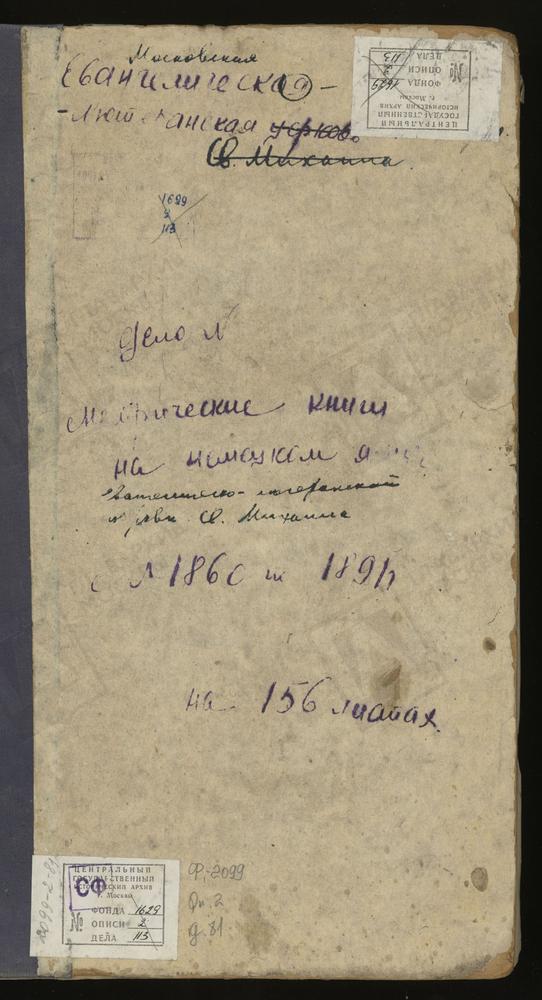 Московская
Евангелическая-
-лютеранская церковь
Св. Михаила
ЦЕНТРАЛЬНЫЙ
ГОСУДАРСТВЕННЫЙ
ИСТОРИЧЕСКИЙ АРХИВ
г. Москвы
ФОНДА 1629
№ ОПИСИ 2
ДЕЛА 113
1629
2
113
Дело №
Метрические книги
на немецком
лютеранской
Св. Михаила
1860 1895
на 156 листах.
ЦЕНТРАЛЬНЫЙ
ГОСУДАРСТВЕННЫЙ
ИСТОРИЧЕСКИЙ АРХИВ
г. Москвы
СФ
ФОНДА 1629
№ ОПИСИ 2
ДЕЛА 113
Ф-2099
Оп. 2
д. 81